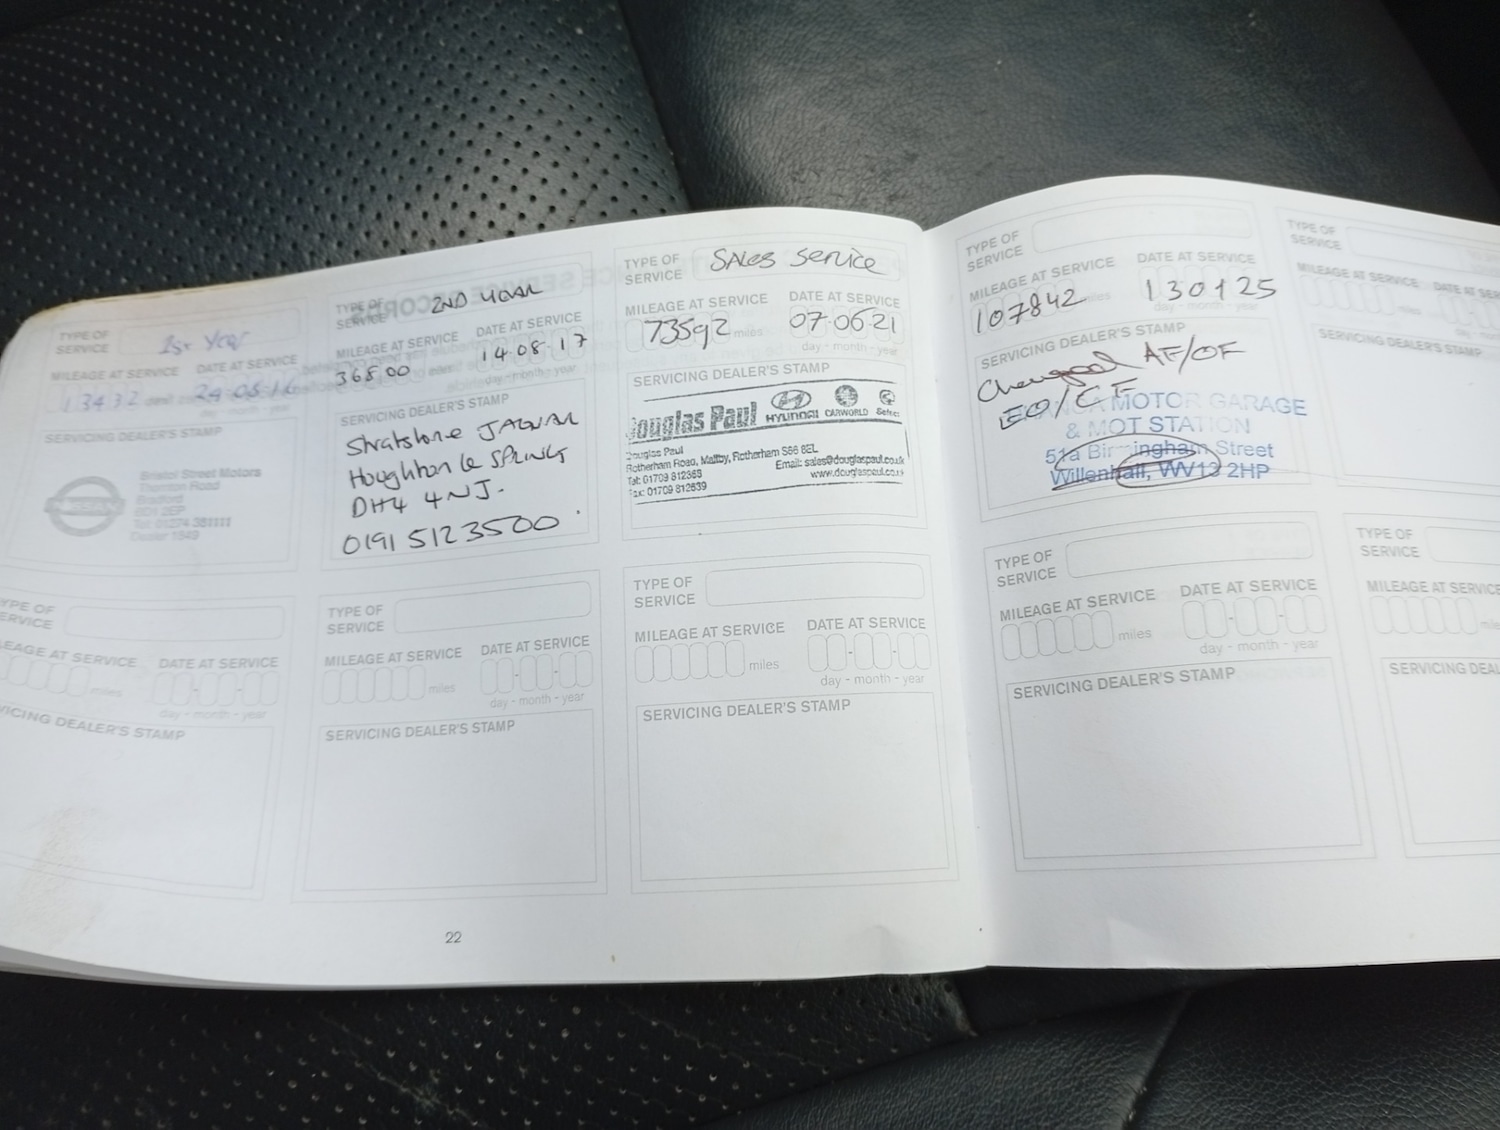 TYPE OF SERVICE 1st Year
MILEAGE AT SERVICE DATE AT SERVICE
13432 24·08·16
day - month - year
SERVICING DEALER'S STAMP
NISSAN
Bristol Street Motors
Thornton Road
Bradford
Tel: 01274
TYPE OF SERVICE 2ND YEAR
MILEAGE AT SERVICE DATE AT SERVICE
36800 14·08·17
day - month - year
SERVICING DEALER'S STAMP
Stratstone JAGUAR
Houghton le SPRING
DH4 4NJ.
0191 5123500
TYPE OF SERVICE SALES SERVICE
MILEAGE AT SERVICE DATE AT SERVICE
73592 miles 07-06-21
day - month - year
SERVICING DEALER'S STAMP
Douglas Paul HYUNDAI CARWORLD Select
Douglas Paul
Rotherham Road, Maltby, Rotherham S66 8EL
Tel: 01709 812365 Email: sales@douglaspaul.co.uk
Fax: 01709 812639 www.douglaspaul.co.uk
TYPE OF SERVICE
MILEAGE AT SERVICE DATE AT SERVICE
107842 miles 130125
day - month - year
SERVICING DEALER'S STAMP
Changed AF/OF
EO/CF
MOTOR GARAGE
& MOT STATION
51a Birmingham Street
Willenhall, WV13 2HP
TYPE OF SERVICE
MILEAGE AT SERVICE DATE AT
SERVICING DEALER'S STAMP
TYPE OF SERVICE
MILEAGE AT SERVICE DATE AT SERVICE
miles day - month - year
SERVICING DEALER'S STAMP
TYPE OF SERVICE
MILEAGE AT SERVICE DATE AT SERVICE
miles day - month - year
SERVICING DEALER'S STAMP
TYPE OF SERVICE
MILEAGE AT SERVICE DATE AT SERVICE
miles day - month - year
SERVICING DEALER'S STAMP
TYPE OF SERVICE
MILEAGE AT SERVICE DATE AT SERVICE
miles day - month - year
SERVICING DEALER'S STAMP
TYPE OF SERVICE
MILEAGE AT SERVICE
SERVICING
22